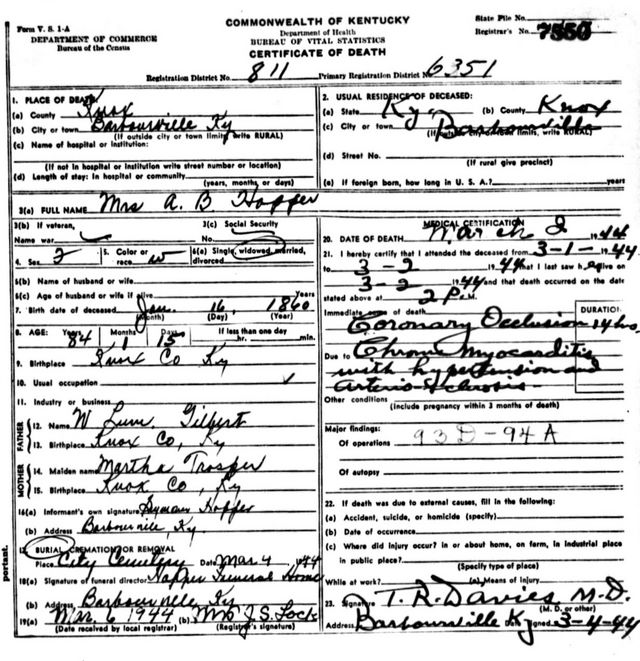 Form V. S. 1-A
DEPARTMENT OF COMMERCE
Bureau of the Census
COMMONWEALTH OF KENTUCKY
Department of Health
BUREAU OF VITAL STATISTICS
CERTIFICATE OF DEATH
State File No.
Registrar's No. 7550
Registration District No. 811 Primary Registration District No. 6351
1. PLACE OF DEATH
(a) County Knox
(b) City or town Barbourville Ky
(If outside city or town limits, write RURAL)
(c) Name of hospital or institution:
(If not in hospital or institution write street number or location)
(d) Length of stay: In hospital or community
(years, months, or days)
2. USUAL RESIDENCE OF DECEASED:
(a) State Ky. (b) County Knox
(c) City or town Barbourville
(If outside city or town limits, write RURAL)
(d) Street No.
(If rural give precinct)
(e) If foreign born, how long in U. S. A.? years
3(a) FULL NAME Mrs A. B Hopper
3(b) If veteran,
Name war
3(c) Social Security
No.
4. Sex F 5. Color or race w 6(a) Single, widowed, married, divorced
6(b) Name of husband or wife
6(c) Age of husband or wife if alive Years
7. Birth date of deceased Jan. 16, 1860
(Month) (Day) (Year)
8. AGE: Years 84 Months 1 Days 15 If less than one day
hr. min.
9. Birthplace Knox Co Ky
10. Usual occupation
11. Industry or business
FATHER
12. Name W Gilbert
13. Birthplace Knox Co, Ky
MOTHER
14. Maiden name Martha Trosper
15. Birthplace Knox Co, Ky
16(a) Informant's own signature Hopper
(b) Address Barbourville, Ky
17. BURIAL, CREMATION OR REMOVAL
Place City Cemetery Date Mar 4, 1944
18(a) Signature of funeral director Hopper Funeral Home
(b) Address Barbourville Ky
19(a) Mar. 6 1944 (b) Mrs J. S. Lock
(Date received by local registrar) (Registrar's signature)
MEDICAL CERTIFICATION
20. DATE OF DEATH March 2 1944
21. I hereby certify that I attended the deceased from 3-1- 1944
to 3-2 1944 that I last saw h alive on
3-2 1944 and that death occurred on the date
stated above at 2 P.M.
Immediate cause of death
DURATION:
Coronary Occlusion 14 hrs.
Due to Chronic Myocarditis
with hypertension and
Arterio-Sclerosis
Other conditions
(Include pregnancy within 3 months of death)
Major findings:
Of operations 93D-94A
Of autopsy
22. If death was due to external causes, fill in the following:
(a) Accident, suicide, or homicide (specify)
(b) Date of occurrence
(c) Where did injury occur? in or about home, on farm, in industrial place
in public place?
(Specify type of place)
While at work? (e) Means of injury
23. Signature T. R. Davies, M.D.
(M. D. or other)
Address Barbourville Ky Date signed 3-4-44
portant.